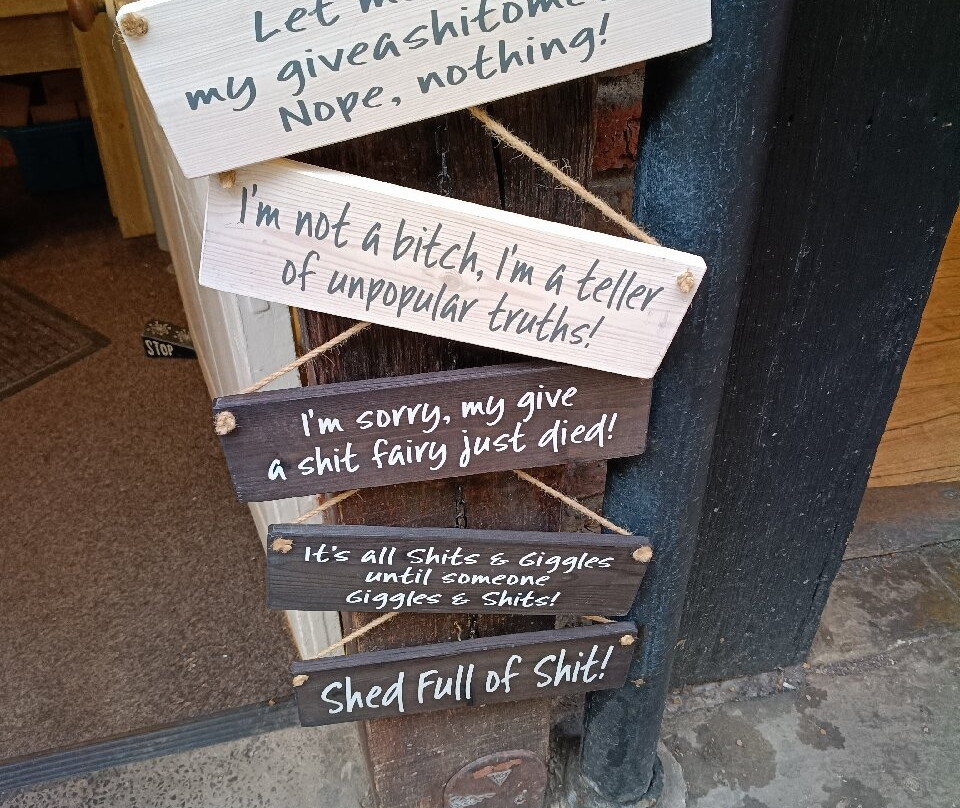 Let
my giveashitome
Nope, nothing!
I'm not a bitch, I'm a teller
of unpopular truths!
I'm sorry, my give
a shit fairy just died!
It's all Shits & Giggles
until someone
Giggles & Shits!
Shed Full of Shit!
STOP